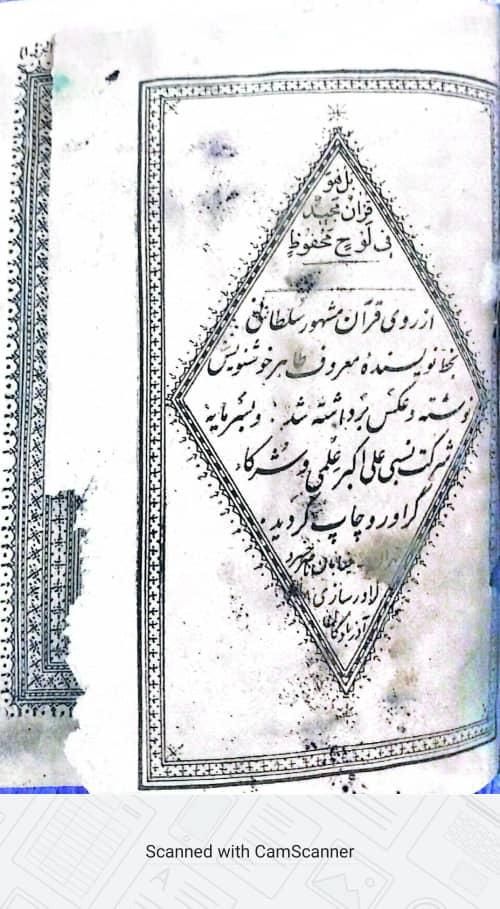 بل هو
قرآن مجید
فی لوح محفوظ
از روی قرآن مشهور سلطانی
بخط نویسندهٔ معروف طاهر خوشنویس
نوشته و عکس برداشته شد و بسرمایه
شرکت نسبی علی اکبر علمی و شرکاء
گراور و چاپ گردید
خیابان ناصر خسرو
گراور سازی
آذربادگان
Scanned with CamScanner